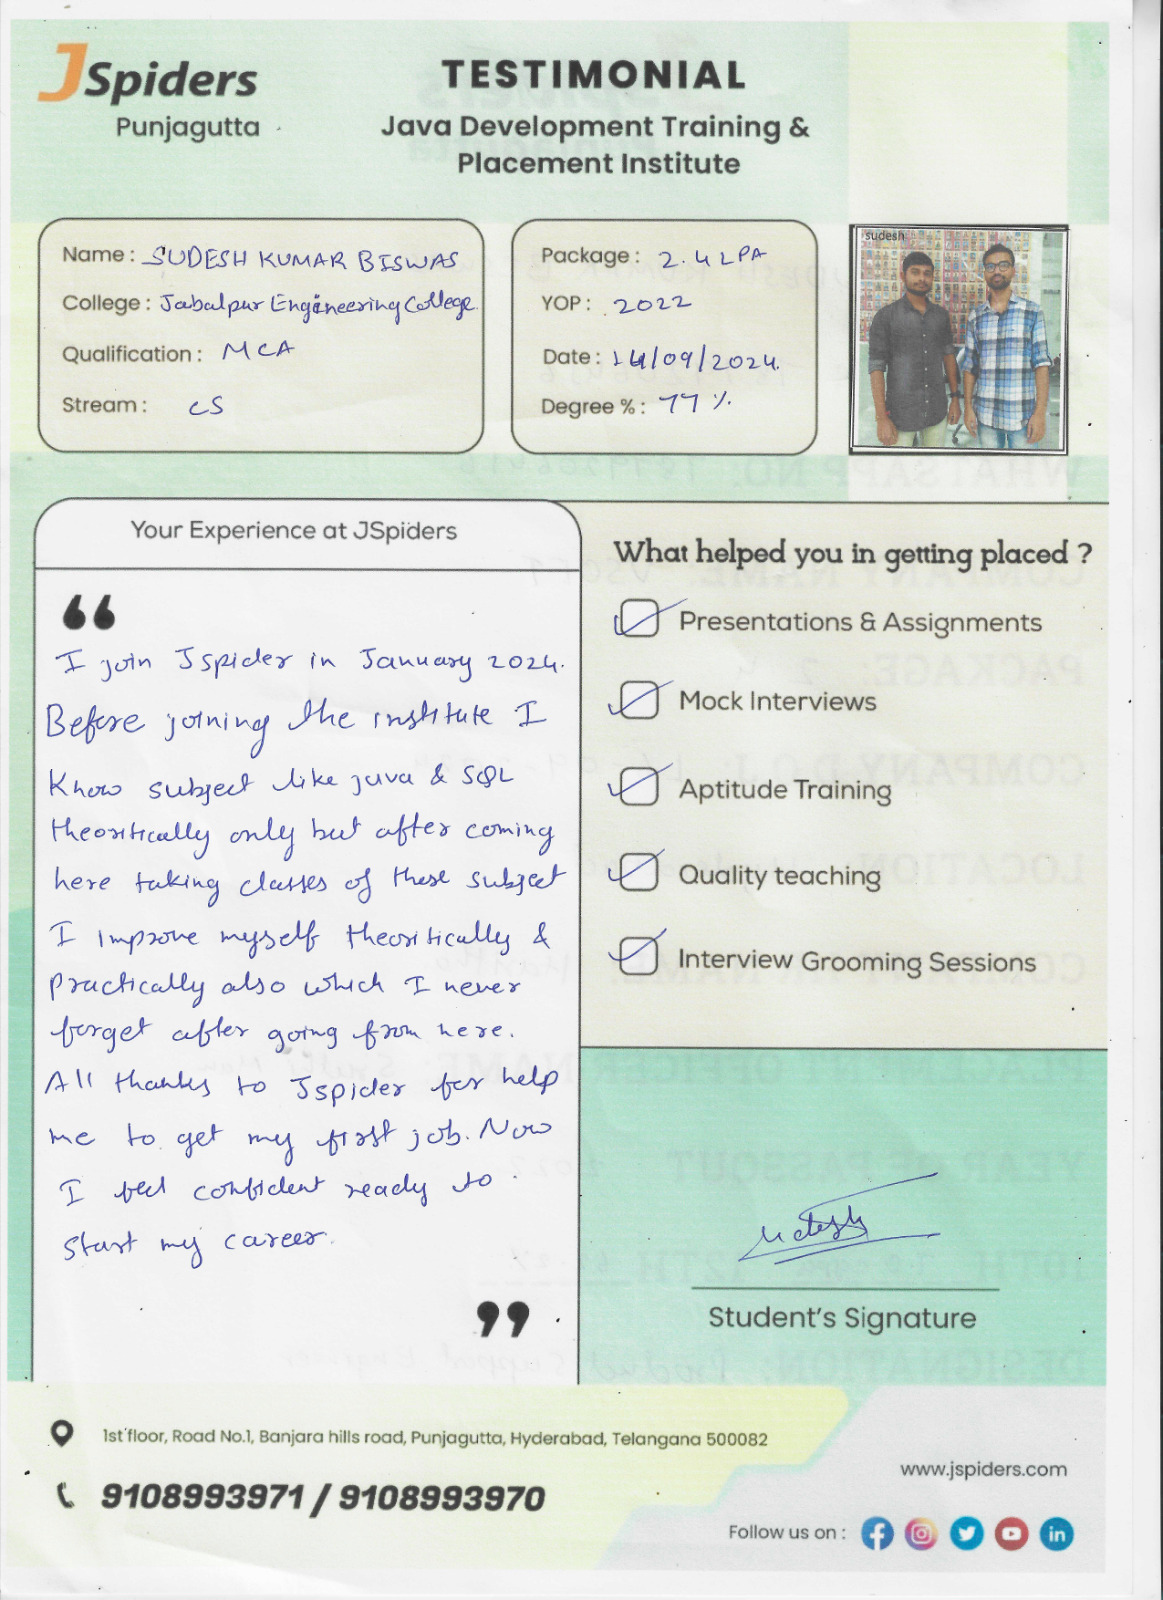 JSpiders
Punjagutta
TESTIMONIAL
Java Development Training &
Placement Institute
Name : SUDESH KUMAR BISWAS
College : Jabalpur Engineering College
Qualification : MCA
Stream : CS
Package : 2.4 LPA
YOP : 2022
Date : 14/09/2024.
Degree % : 77 %
sudesh
Your Experience at JSpiders
“
I join Jspider in January 2024.
Before joining the institute I
Know subject like java & SQL
theoritically only but after coming
here taking classes of these subject
I improve myself theoritically &
practically also which I never
forget after going from here.
All thanks to Jspider for help
me to get my first job. Now
I feel confident ready to
start my career.
”
What helped you in getting placed ?
Presentations & Assignments
Mock Interviews
Aptitude Training
Quality teaching
Interview Grooming Sessions
Student's Signature
1st floor, Road No.1, Banjara hills road, Punjagutta, Hyderabad, Telangana 500082
9108993971 / 9108993970
www.jspiders.com
Follow us on :